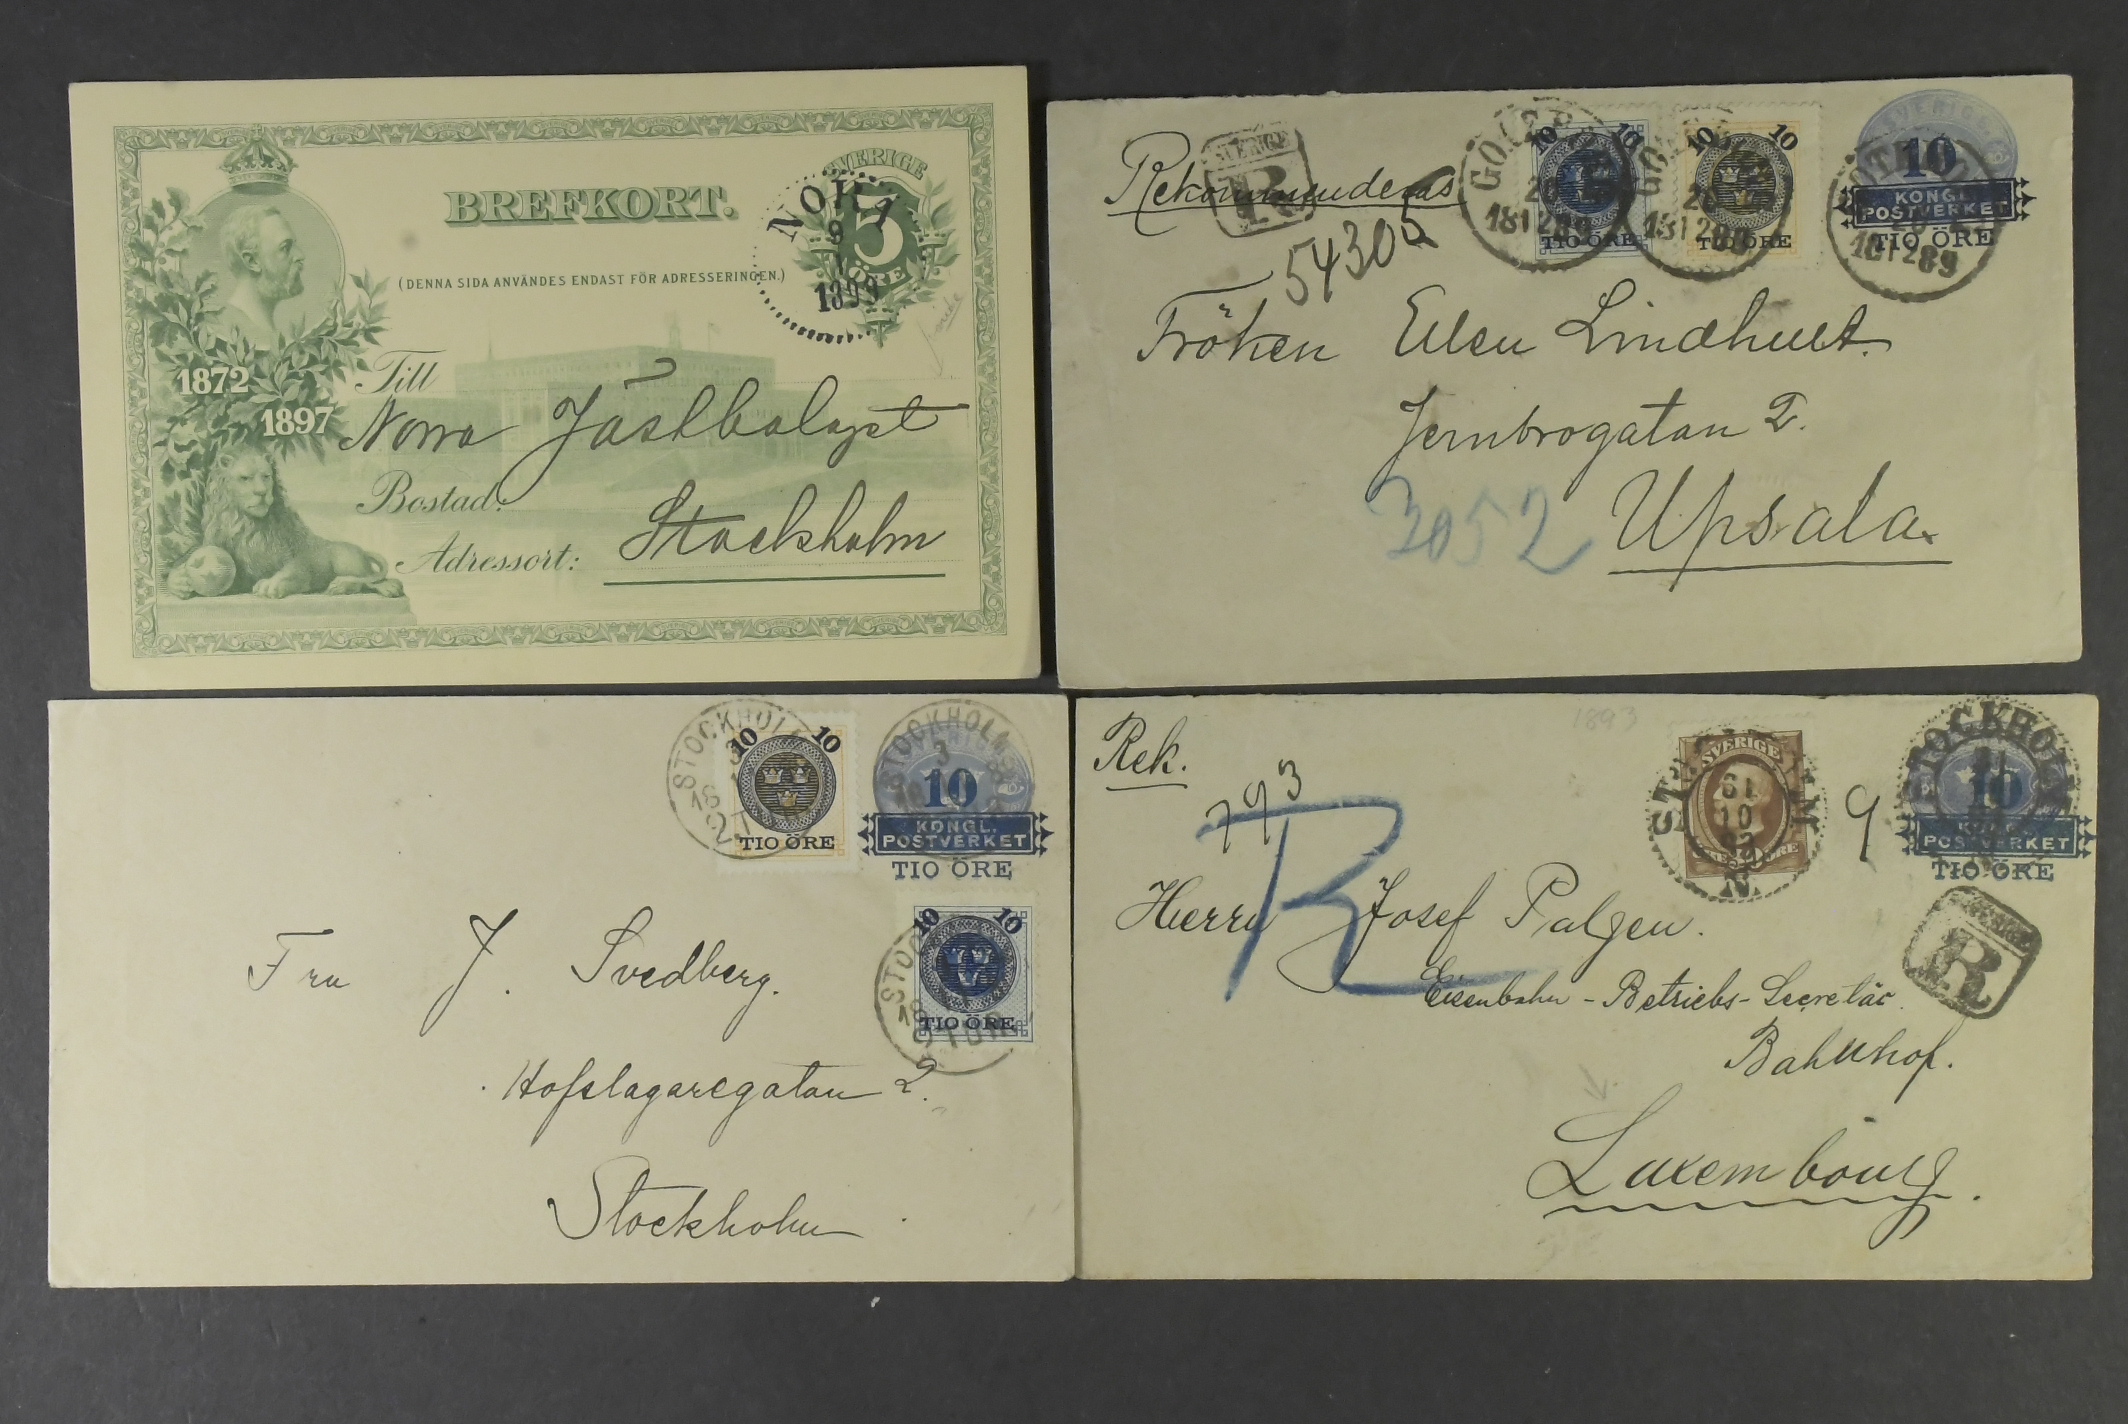 SVERIGE
BREFKORT.
5
ÖRE
NORA
9
1
1899
(DENNA SIDA ANVÄNDES ENDAST FÖR ADRESSERINGEN.)
1872
1897
Till
Norra
Bostad:
Adressort:
Stockholm
Rekommenderas
SVERIGE
R
54305
10 10
TIO ÖRE
10 10
TIO ÖRE
SVERIGE
10
KONGL.
POSTVERKET
TIO ÖRE
20
18 12 89
Fröken Ellen Lindhult.
Jernbrogatan 2.
3052
Upsala
STOCKHOLM
10 10
TIO ÖRE
STOCKHOLM
3
10
KONGL.
POSTVERKET
TIO ÖRE
10 10
TIO ÖRE
Fru J. Svedberg.
Hofslagaregatan 2.
Stockholm
1893
Rek.
793
R
SVERIGE
ÖRE
10
9
STOCKHOLM
10
POSTVERKET
TIO ÖRE
R
Herrn Josef Palgen.
Eisenbahn-Betriebs-Secretär
Bahnhof.
Luxembourg.